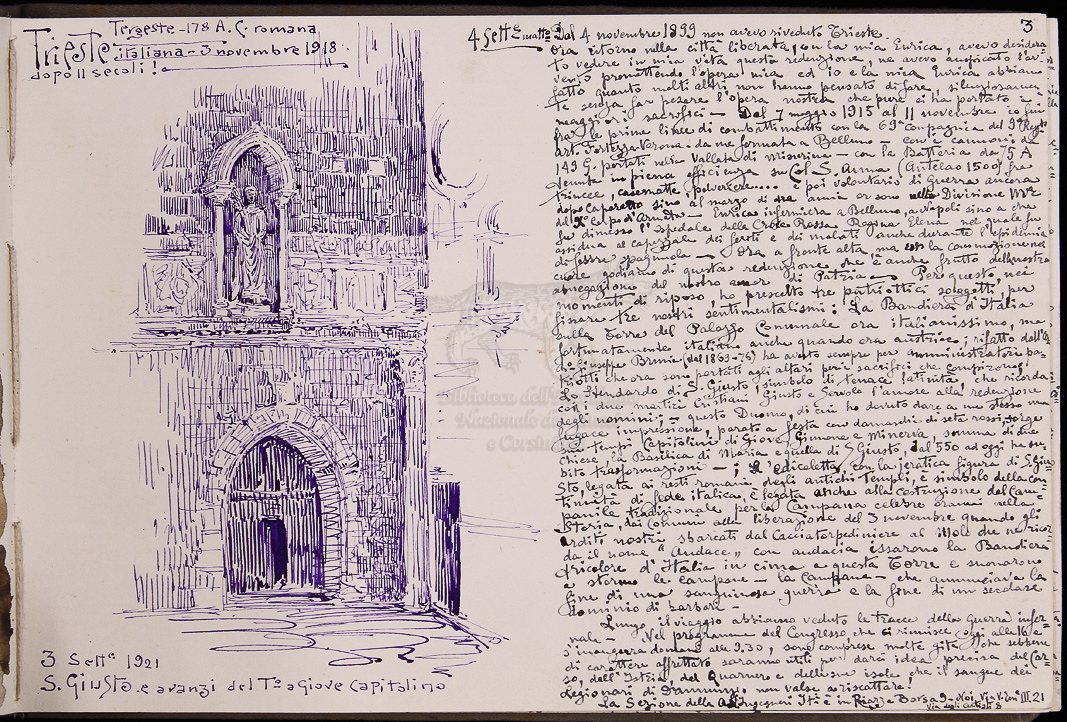 Tergeste - 178 A. C. romana
Trieste italiana - 3 novembre 1918.
dopo II secoli!
3 Sett.e 1921
S. Giusto e avanzi del T.o a Giove Capitolino
3
4 Sett.e matto Dal 4 novembre 1899 non avevo riveduto Trieste.
Ora ritorno nella città liberata, con la mia Enrica, avevo desidera-
to vedere in mia vita questa redenzione, ne avevo auspicato l'av-
vento promettendo l'opera mia ed io e la mia Enrica abbiamo
fatto quanto molti altri non hanno pensato di fare, silenziosamen-
te senza far pesare l'opera nostra che pure ci ha portato a
maggiori sacrifici - Dal 7 maggio 1915 al 11 novembre io fui
fra le prime linee di combattimento con la 69a compagnia del 9° Regto
Art. Fortezza Verona - da me formata a Belluno - con e cannoni da
149 G. portati nella Vallata di Misurina - con la Batteria da 75 A
tenuta in piena efficienza su Col S. Anna (Antelao 1500) fra
trincee, casematte, polveriere.... e poi volontario di Guerra ancora
dopo Caporetto sino al marzo di tre anni or sono nella Divisione Mre
del X° Corpo d'Armata - Enrica infermiera a Belluno, a Napoli sino a che
fu dimesso l'ospedale della Croce Rossa Regina Elena nel quale fu
assidua al capezzale dei feriti e dei malati anche durante l'epidemia
di febbre spagnuola - Ora a fronte alta ma con la commozione nel
cuore godiamo di questa redenzione che è anche frutto della nostra
abnegazione del nostro amor di Patria - Per questo, nei
momenti di riposo, ho prescelto tre patriottici soggetti, per
finare tre nostri sentimentalismi: La Bandiera d'Italia
sulla Torre del Palazzo Comunale ora italianissimo, ma
fortunatamente italiano anche quando era austriaco; rifatto dall'A
cho Giuseppe Bruni (del 1869-75) ha avuto sempre per amministratori pa-
triotti che ora sono portati agli altari per i sacrifici che compirono,
Lo Stendardo di S. Giusto, simbolo di tenace latinità, che ricorda
con i due martiri Cristiani Giusto e Servolo l'amore alla redenzione
degli uomini; in questo Duomo, di cui ho dovuto dare a me stesso una
fugace impressione, parato a festa con damaschi di seta rossi, sorge
sui templi Capitolini di Giove, Giunone e Minerva, somma di due
chiese, la Basilica di Maria e quella di S. Giusto, dal 550 ad oggi ha su-
bito trasformazioni - ; L'edicoletta, con la jeratica figura di S. Giu-
sto, legata ai resti romani degli antichi Templi, è simbolo della con
tinuità di fede italica, è legata anche alla costruzione del Cam-
panile tradizionale per la Campana celebre oramai nella
Storia, dai Comuni alla liberazione del 3 novembre quando gli
Arditi nostri sbarcati dal Cacciatorpediniere al Molo che ne ricor-
da il nome "Audace" con audacia issarono la Bandiera
tricolore d'Italia in cima a questa Torre e suonarono
a stormo le campane - la Campana - che annunciava la
fine di una sanguinosa guerra e la fine di un secolare
dominio di barbari -
Lungo il viaggio abbiamo veduto le tracce della Guerra infer-
nale - Nel programma del Congresso, che si riunisce oggi alle 16 e
s'inaugura domani alle 9.30, sono comprese molte gite che sebbene
di carattere affrettato saranno utili per darci idea precisa del Car-
so, dell'Istria, del Quarnero e delle sue isole, che il sangue dei
Legionari di Dannunzio non valse a riscattare.
La Sezione della Ingegneri It.i è in Piazza Borsa 9 - Noi, Via III. 21
Via degli artisti 8
Biblioteca dell'
Nazionale
e Cu